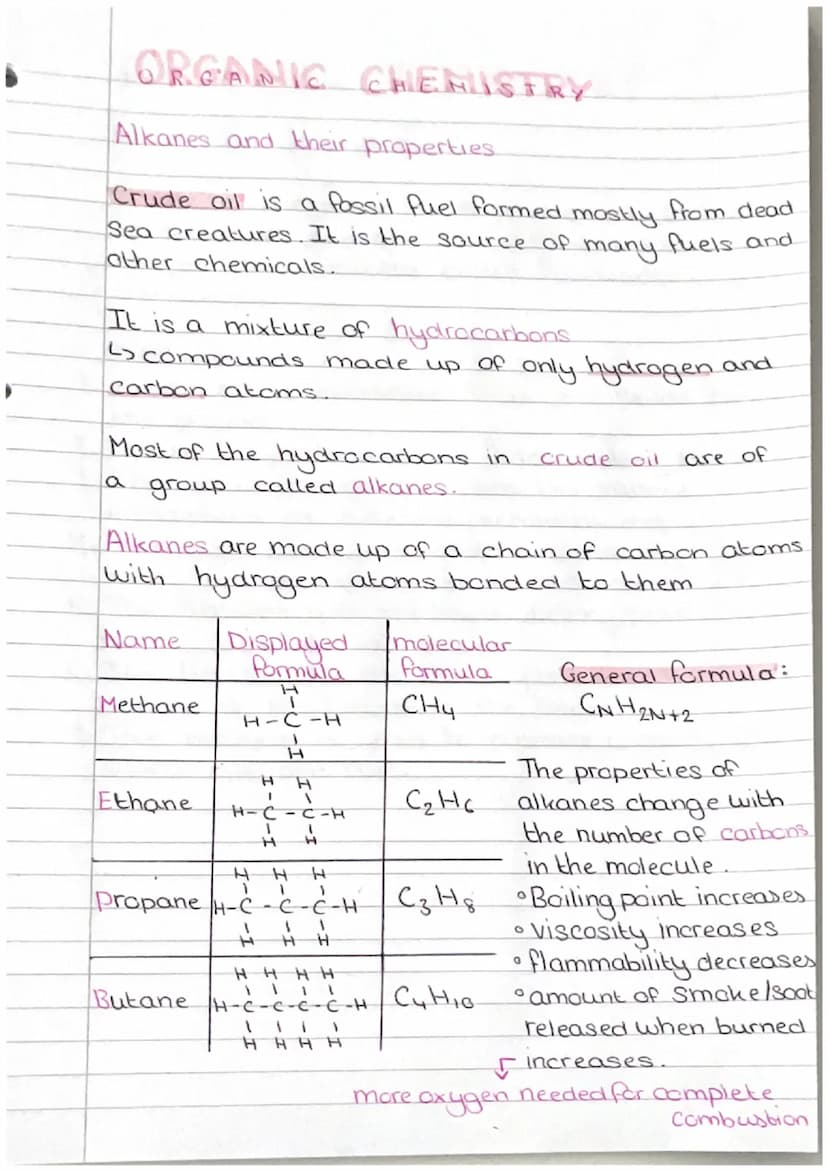 ORGANIC CHEMISTRY
Alkanes and their properties
Crude oil is a fossil fuel formed mostly from dead
Sea creatures. It is the source of many fuels and
other chemicals.
It is a mixture of hydrocarbons
↳ compounds made up of only hydrogen and
carbon atoms.
Most of the hydrocarbons in crude oil are of
a group called alkanes.
Alkanes are made up of a chain of carbon atoms
with hydrogen atoms bonded to them
Name Displayed formula molecular formula
Methane
H
H-C-H
H
CH4
Ethane
H H
H-C-C-H
H H
C2H6
Propane
H H H
H-C-C-C-H
H H H
C3H8
Butane
H H H H
H-C-C-C-C-H
H H H H
C4H10
General formula:
CNH2N+2
The properties of
alkanes change with
the number of carbons
in the molecule.
°Boiling point increases
°viscosity increases
°flammability decreases
°amount of Smoke/soot
released when burned
increases.
more oxygen needed for complete
combustion